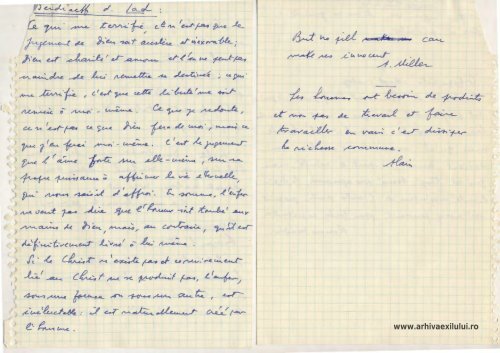 Berdiaeff d Lad :
Ce qui me terrifie, ce n'est pas que le
jugement de Dieu soit austère et inexorable ;
Dieu est charité et amour et l'on ne peut pas
craindre de lui remettre sa destinée, ce qui
me terrifie, c'est que cette liberté me soit
remise à moi-même. Ce que je redoute,
ce n'est pas ce que Dieu fera de moi, mais ce
que j'en ferai moi-même. C'est le jugement
que l'âme porte sur elle-même, sur sa
propre puissance à affirmer la vie éternelle,
qui nous saisit d'effroi. En somme, l'enfer
ne veut pas dire que l'homme soit tombé aux
mains de Dieu, mais, au contraire, qu'il est
définitivement livré à lui même.
Si le Christ n'existe pas et
lié au Christ ne se produit pas, l'enfer,
sous une forme ou sous une autre, est
inéluctable : il est naturellement créé par
l'homme.
But no pill can
make us innocent
A. Miller
Les hommes ont besoin de produits
et non pas de travail et faire
travailler en vain c'est dissiper
la richesse commune.
Alain
www.arhivaexilului.ro